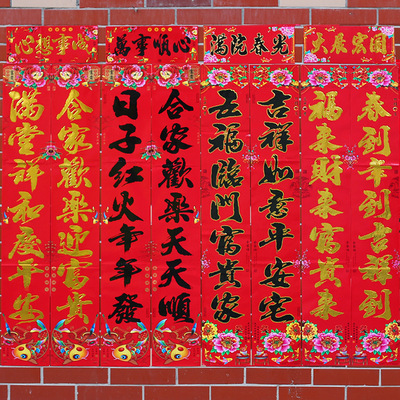 心想事成
萬事順心
滿院春光
大展宏圖
春到年到吉祥到
福来財来富貴来
吉祥如意平安宅
五福臨門富貴家
合家歡樂天天順
日子红火年年發
合家歡樂迎富貴
滿堂祥和慶平安